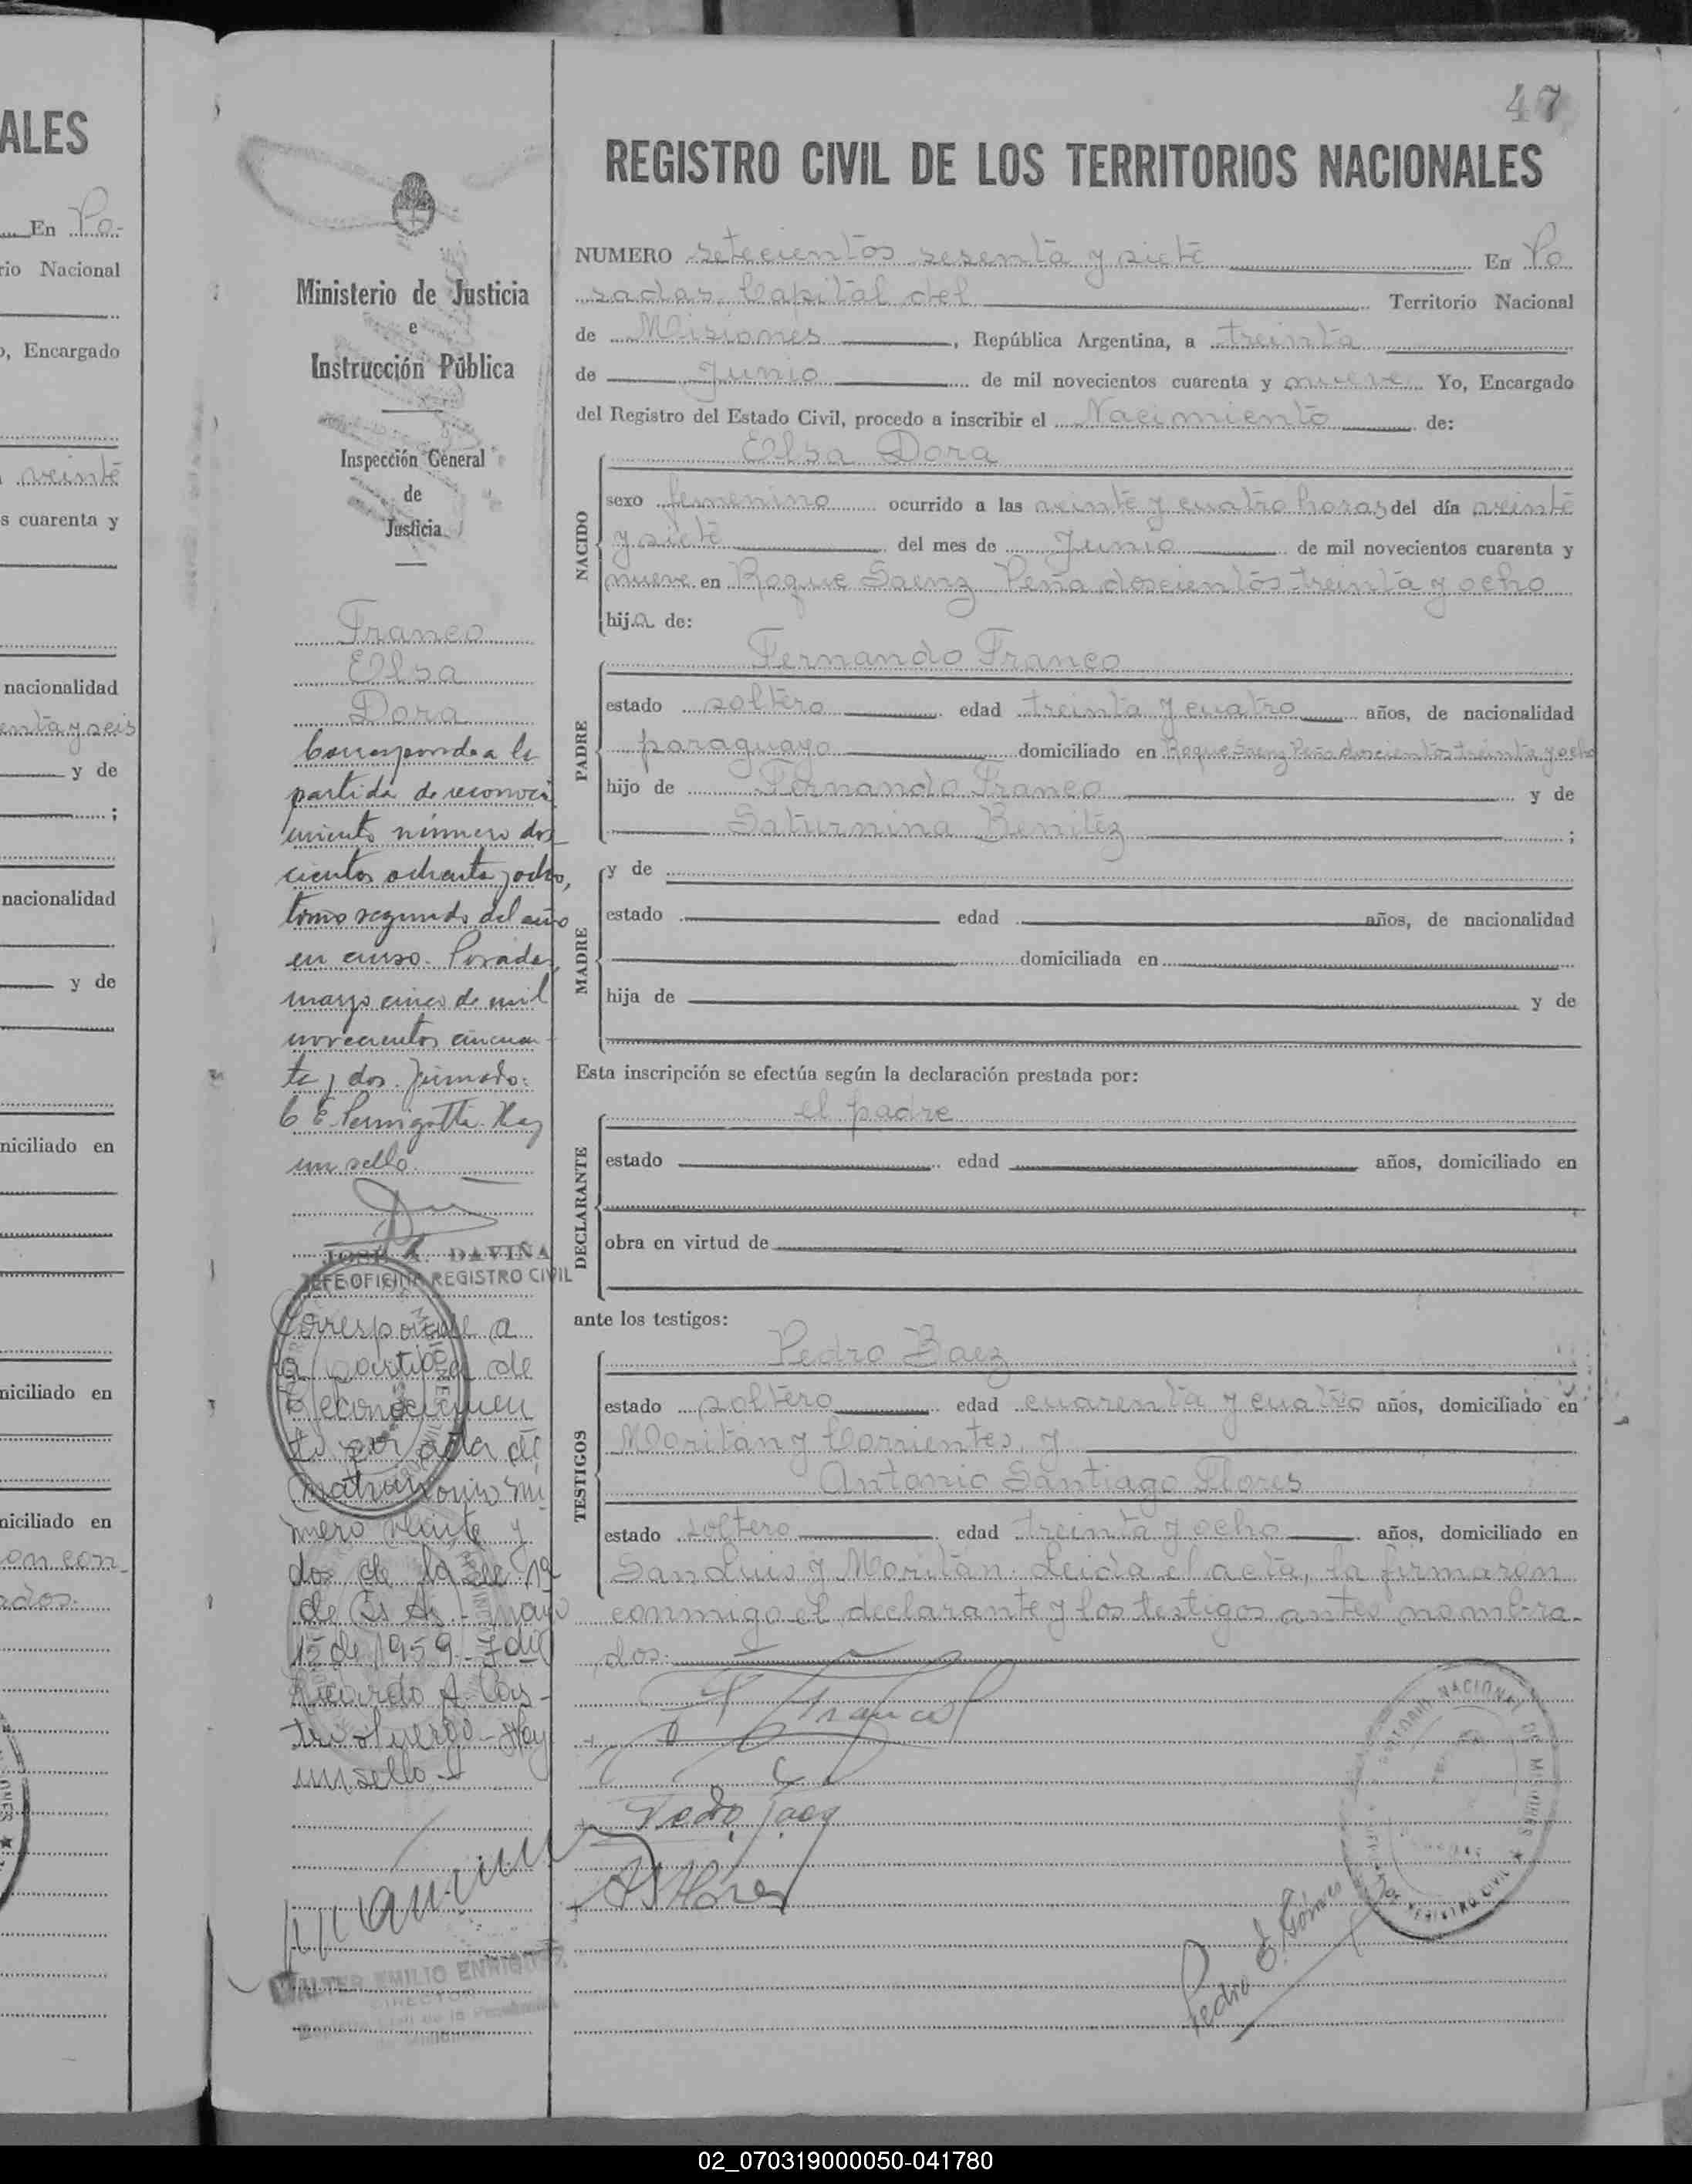 47
REGISTRO CIVIL DE LOS TERRITORIOS NACIONALES
NUMERO setecientos sesenta y siete En Po
sadas, Capital del Territorio Nacional
de Misiones, República Argentina, a treinta
de Junio de mil novecientos cuarenta y nueve Yo, Encargado
del Registro del Estado Civil, procedo a inscribir el Nacimiento de:
NACIDO
Elsa Dora
sexo femenino ocurrido a las veinte y cuatro horas del día veinte
y siete del mes de Junio de mil novecientos cuarenta y
nueve en Roque Saenz Peña doscientos treinta y ocho
hija de:
PADRE
Fernando Franco
estado soltero edad treinta y cuatro años, de nacionalidad
paraguayo domiciliado en Roque Saenz Peña doscientos treinta y ocho
hijo de Fernando Franco y de
Saturnina Benitez ;
MADRE
y de
estado edad años, de nacionalidad
domiciliada en
hija de y de
Esta inscripción se efectúa según la declaración prestada por:
DECLARANTE
el padre
estado edad años, domiciliado en
obra en virtud de
ante los testigos:
TESTIGOS
Pedro Baez
estado soltero edad cuarenta y cuatro años, domiciliado en
Moritán y Corrientes, y
Antonio Santiago Flores
estado soltero edad treinta y ocho años, domiciliado en
San Luis y Moritán. Leida el acta, la firmaron
conmigo el declarante y los testigos antes nombra-
dos.
F Franco
Pedro Baez
A S Flores
Pedro E. Gómes
Ministerio de Justicia
e
Instrucción Pública
Inspección General
de
Justicia
Franco
Elsa
Dora
Corresponde a la
partida de reconoci
miento número dos
cientos ochenta y ocho,
tomo segundo del año
en curso. Posadas,
marzo cinco de mil
novecientos cincuen-
ta y dos. Firmado:
C E Pernigotti. Hay
un sello.
JOSE A. DAVIÑA
JEFE OFICINA REGISTRO CIVIL
Corresponde a
la partida de
Reconocimien
to por acta de
matrimonio nú
mero veinte y
dos de la Sec 19
de Bs As - mayo
15 de 1959 - Fdo
Ricardo A. Cas-
tro - Hay
un sello
WALTER EMILIO ENRIQUEZ
DIRECTOR
ALES
En Po-
rio Nacional
o, Encargado
veinte
s cuarenta y
nacionalidad
enta y seis
y de
;
nacionalidad
y de
niciliado en
niciliado en
niciliado en
on con
ados.
02_070319000050-041780